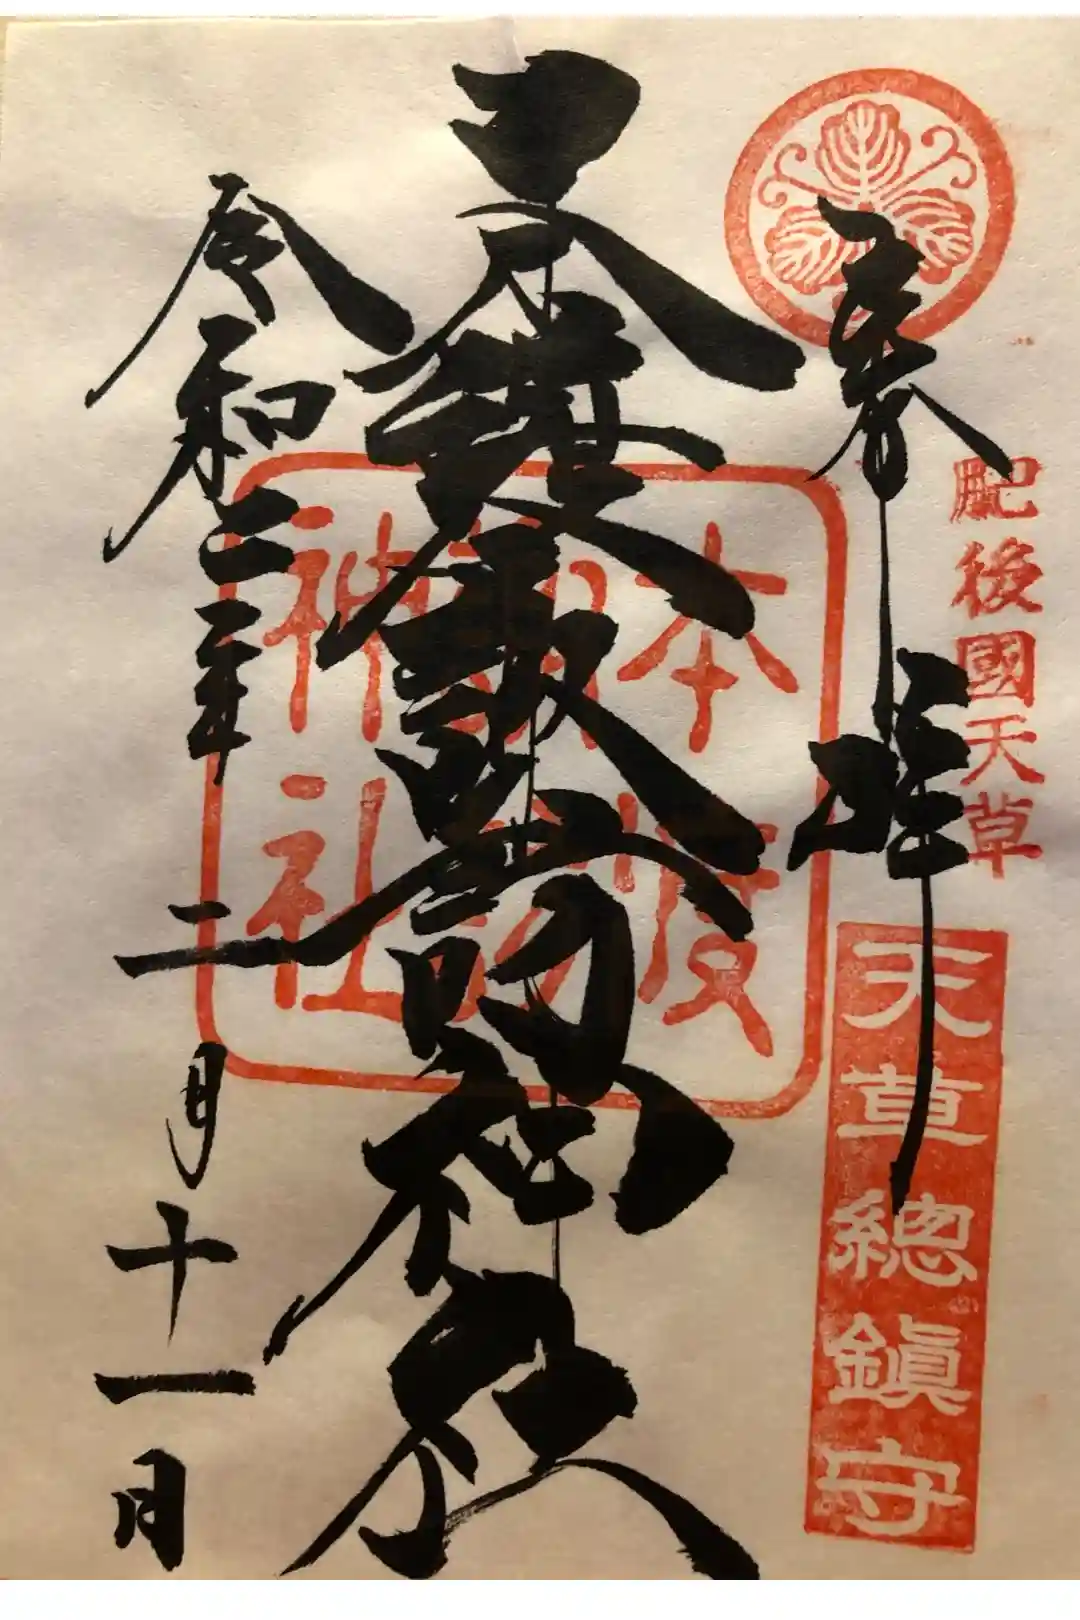 肥後國天草
天草總鎭守
奉拝
本渡諏訪神社
本渡諏訪神社
令和二年二月十一日